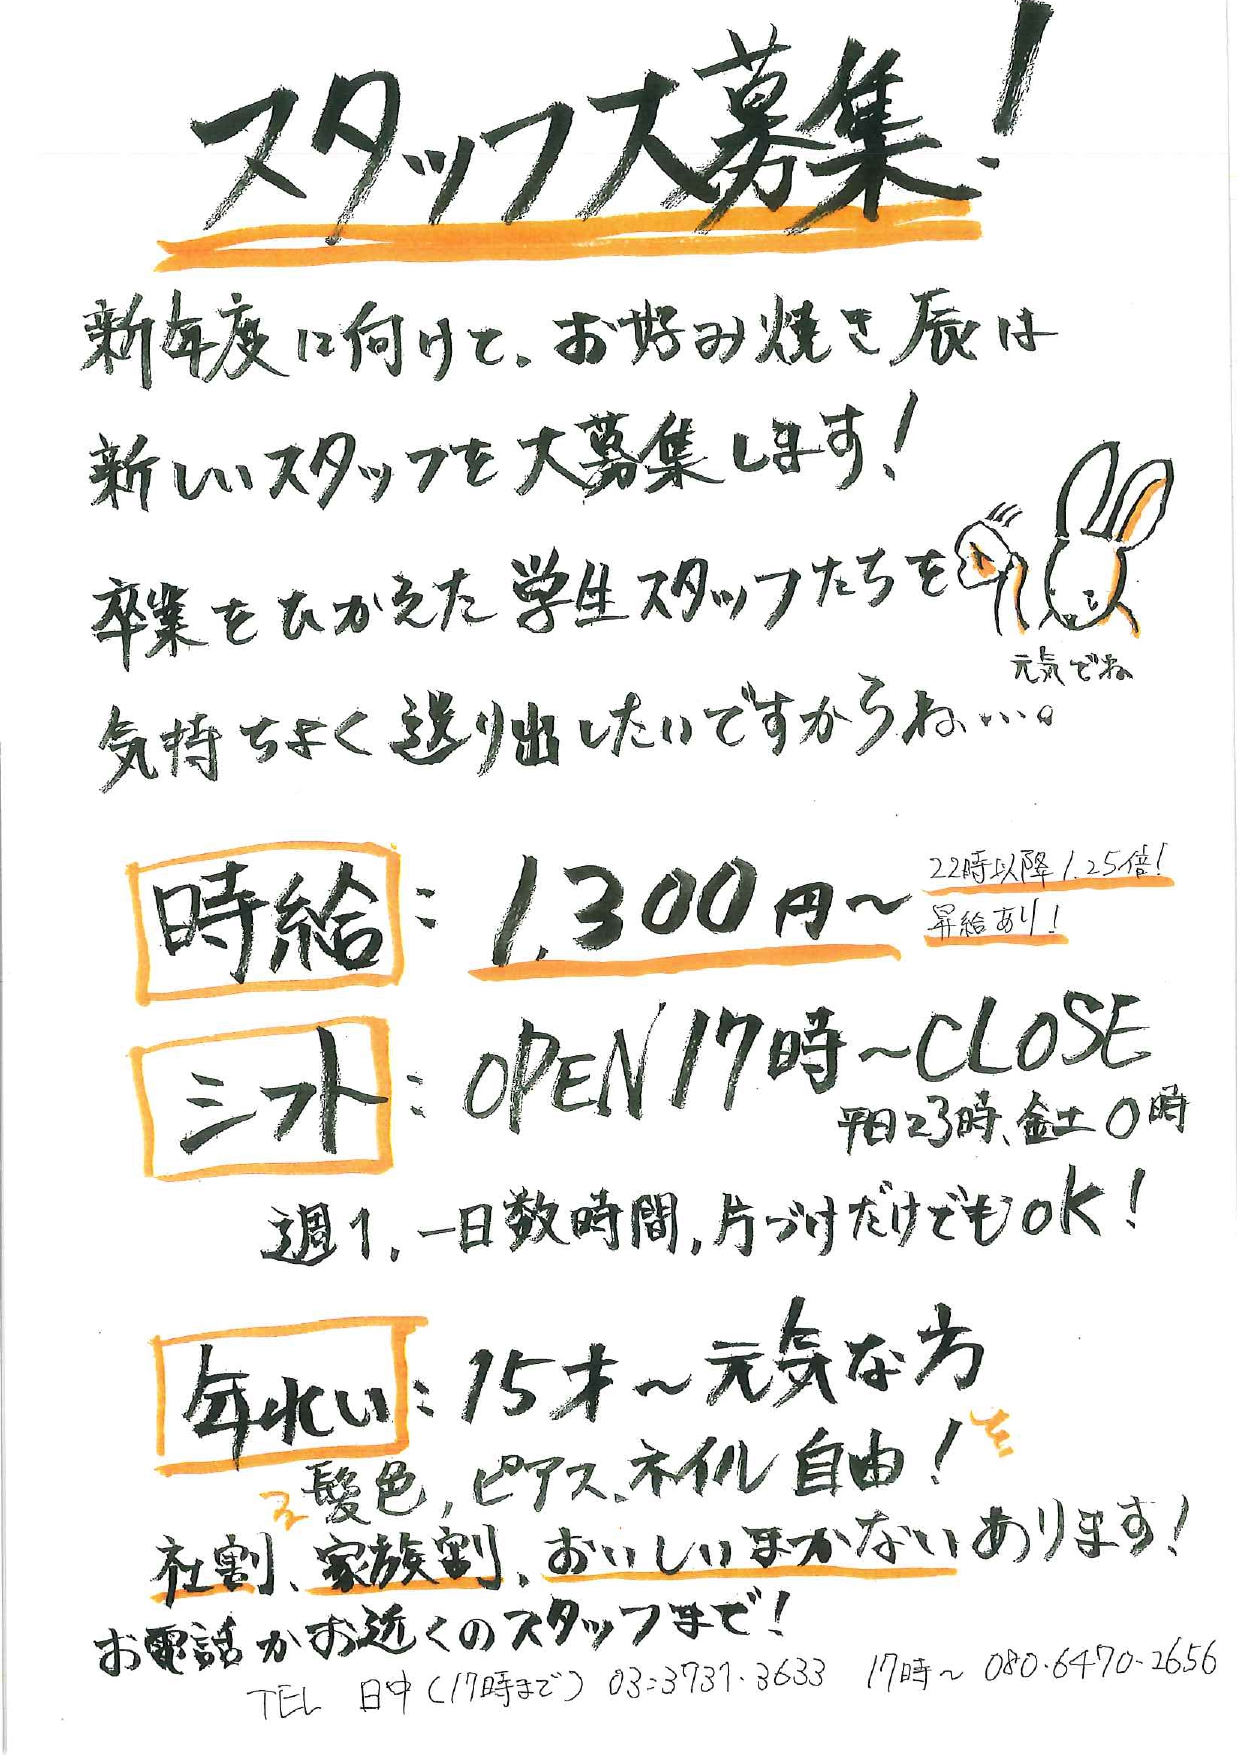 スタッフ大募集！
新年度に向けて、お好み焼き辰は
新しいスタッフを大募集します！
卒業をひかえた学生スタッフたちを
気持ちよく送り出したいですからね…。
元気でね
時給：1,300円～
22時以降1.25倍！
昇給あり！
シフト：OPEN17時～CLOSE
平日23時、金土0時
週1、一日数時間、片づけだけでもOK！
年れい：15才～元気な方
髪色、ピアス、ネイル自由！
社割、家族割、おいしいまかないあります！
お電話かお近くのスタッフまで！
TEL 日中（17時まで）03-3731-3633 17時～ 080-6470-2656